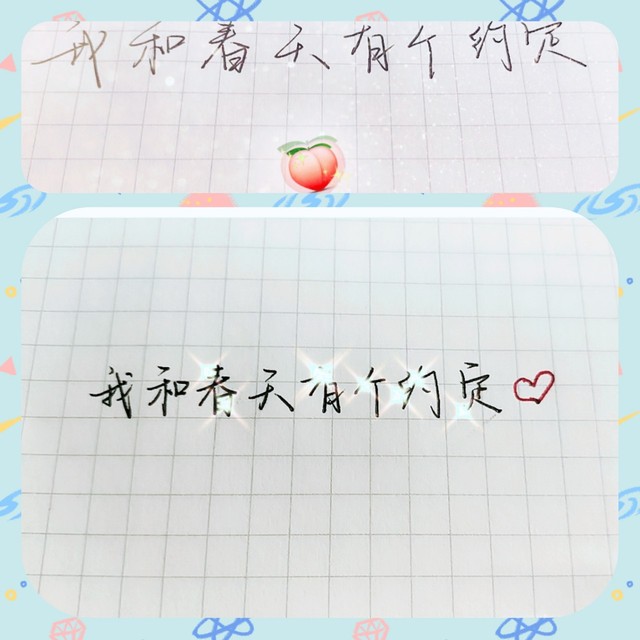 我和春天有个约定
我和春天有个约定